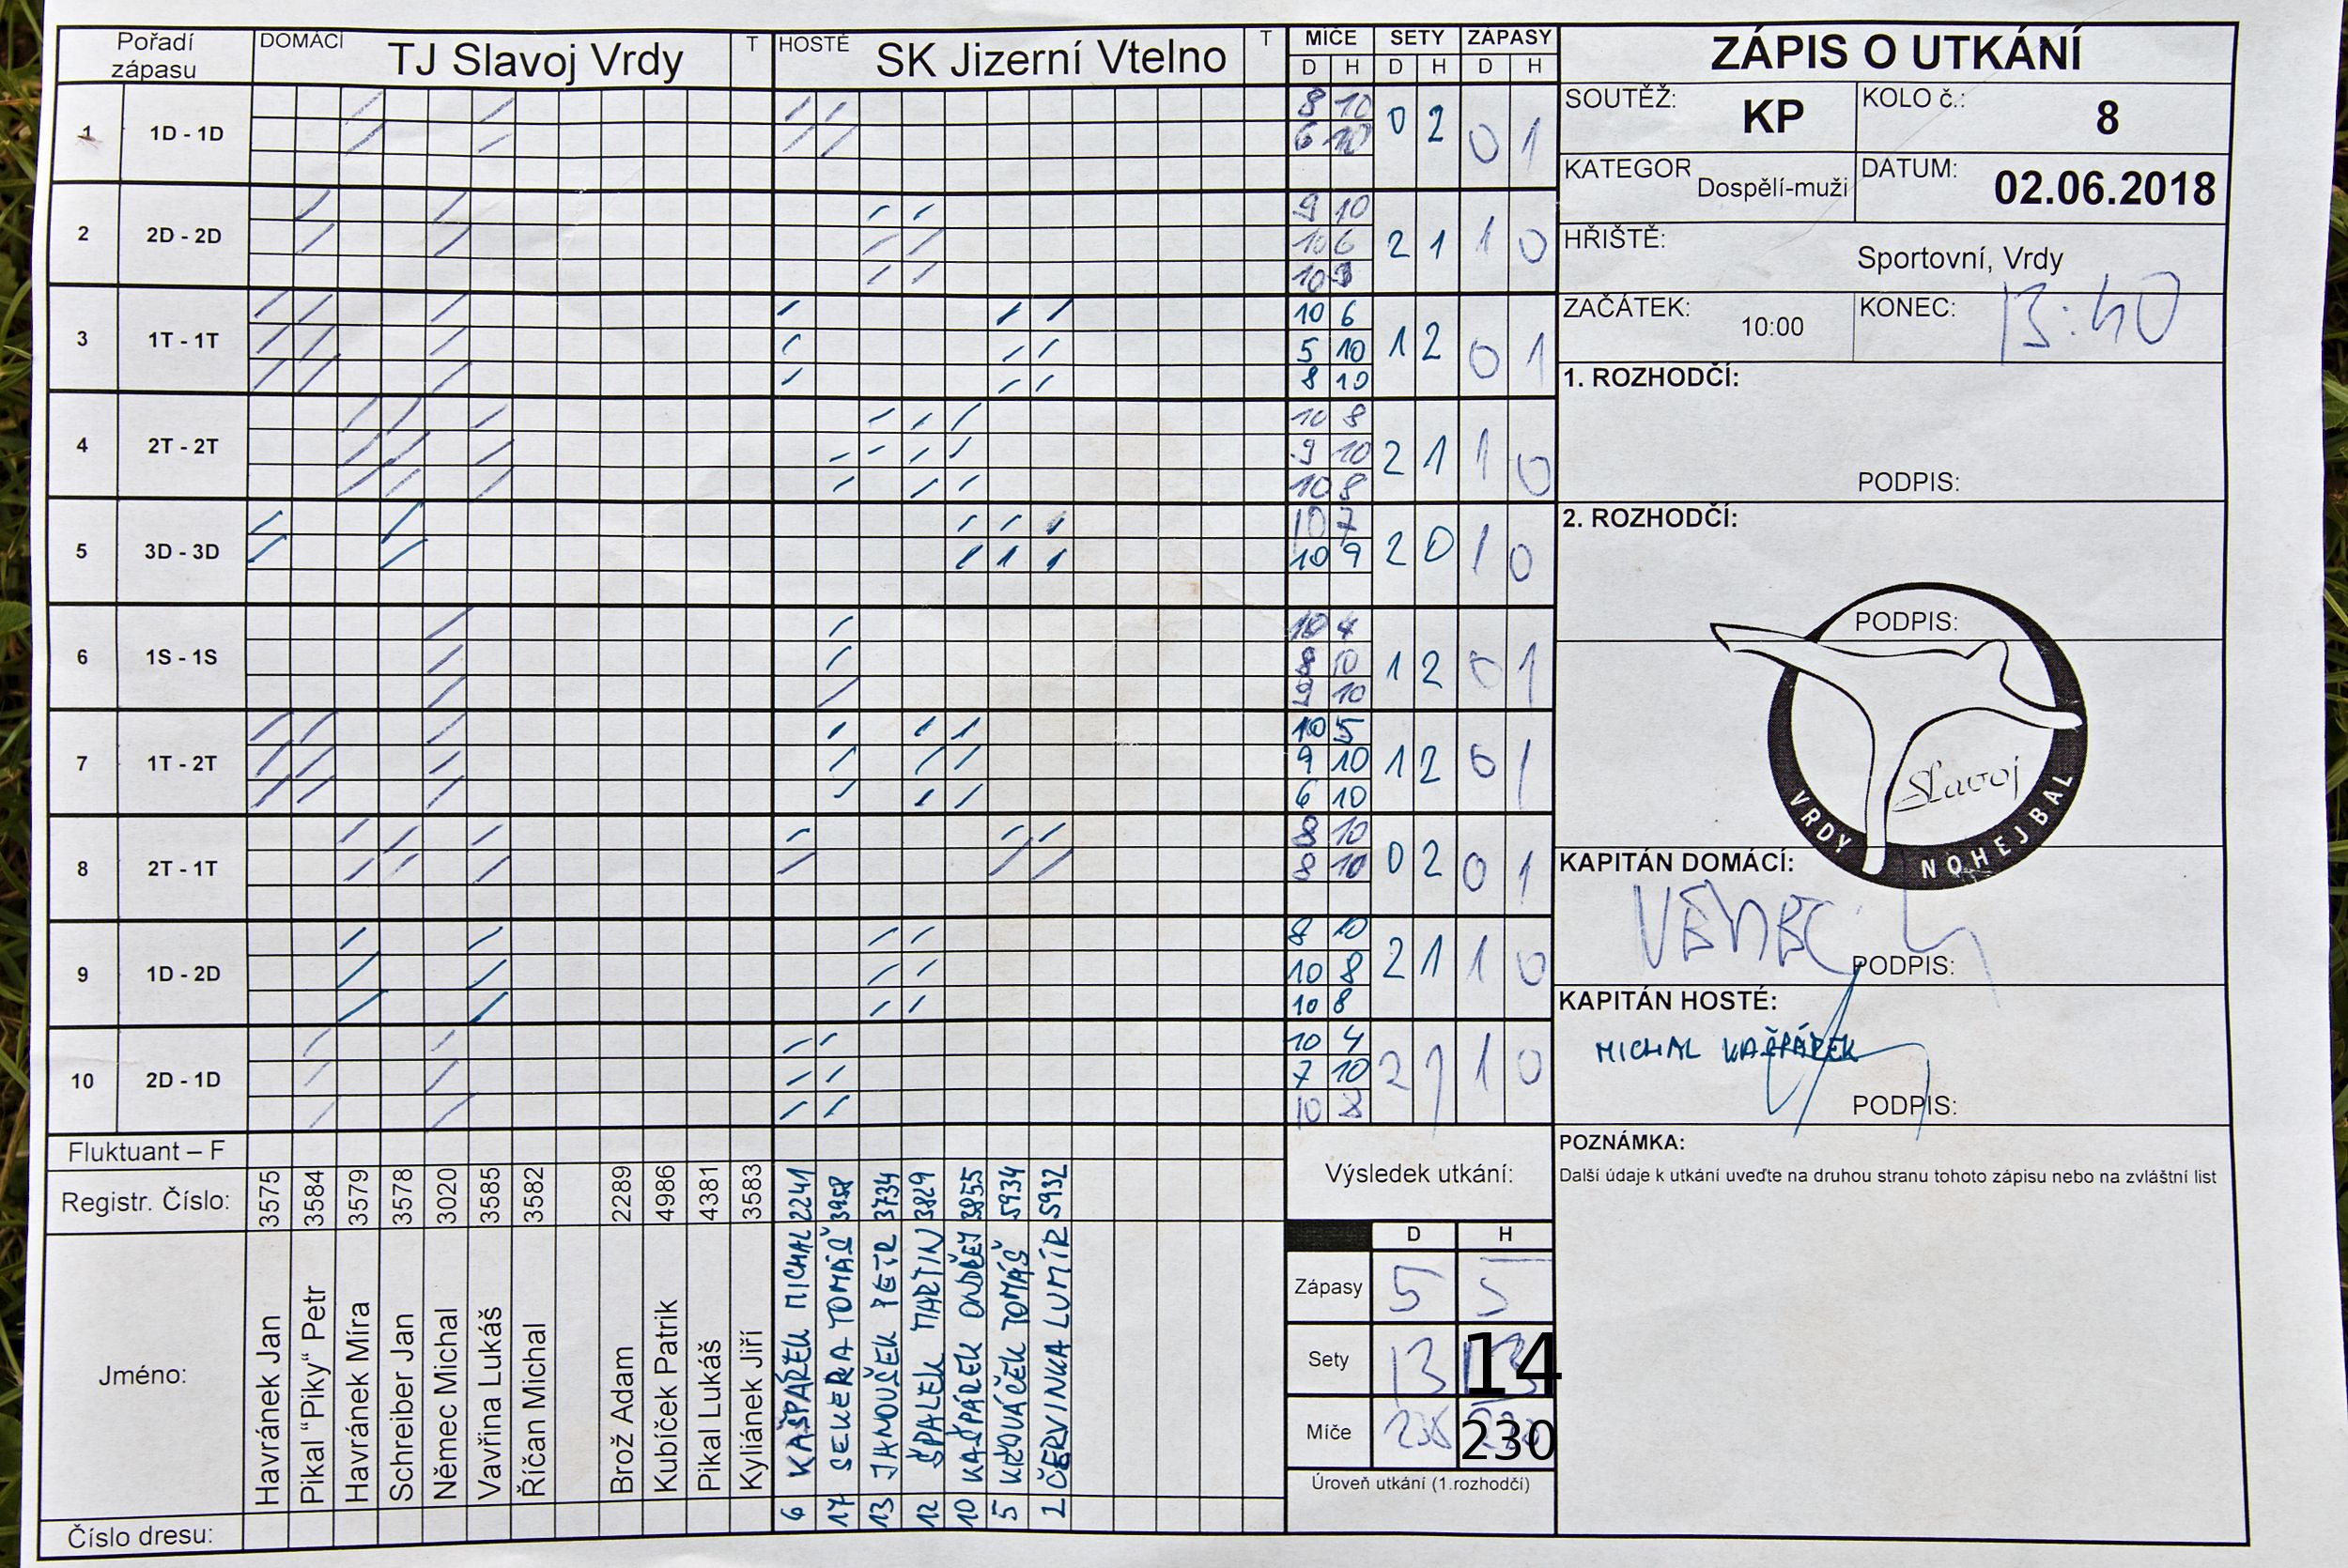 Pořadí zápasu DOMÁCÍ TJ Slavoj Vrdy T HOSTÉ SK Jizerní Vtelno T MÍČE SETY ZÁPASY
D H D H D H
1 1D - 1D 8 10 0 2 0 1
6 10
2 2D - 2D 9 10 2 1 1 0
10 6
10
3 1T - 1T 10 6 1 2 0 1
5 10
8 10
4 2T - 2T 10 8 2 1 1 0
9 10
10 8
5 3D - 3D 10 7 2 0 1 0
10 9
6 1S - 1S 10 4 1 2 0 1
8 10
9 10
7 1T - 2T 10 5 1 2 0 1
9 10
6 10
8 2T - 1T 8 10 0 2 0 1
8 10
9 1D - 2D 8 10 2 1 1 0
10 8
10 8
10 2D - 1D 10 4 2 1 1 0
7 10
10 8
Fluktuant – F
Registr. Číslo: 3575 3584 3579 3578 3020 3585 3582 2289 4986 4381 3583 2241 3958 3734 3829 3855 5934 5932
Jméno:
Havránek Jan
Pikal "Piky" Petr
Havránek Míra
Schreiber Jan
Němec Michal
Vavřina Lukáš
Říčan Michal
Brož Adam
Kubíček Patrik
Pikal Lukáš
Kyliánek Jiří
KAŠPÁREK MICHAL
SEKERA TOMÁŠ
JANOUŠEK PETR
ŠPALEK MARTIN
KAŠPÁREK ONDŘEJ
TOMÁŠ
ČERVINKA LUMÍR
Číslo dresu: 6 17 13 12 10 5 2
Výsledek utkání:
D H
Zápasy 5 5
Sety 13 14
Míče 230
Úroveň utkání (1.rozhodčí)
ZÁPIS O UTKÁNÍ
SOUTĚŽ: KP KOLO č.: 8
KATEGOR Dospělí-muži DATUM: 02.06.2018
HŘIŠTĚ: Sportovní, Vrdy
ZAČÁTEK: 10:00 KONEC: 13:40
1. ROZHODČÍ:
PODPIS:
2. ROZHODČÍ:
PODPIS:
Slavoj
VRDY NOHEJBAL
KAPITÁN DOMÁCÍ:
NĚMEC
PODPIS:
KAPITÁN HOSTÉ:
MICHAL KAŠPÁREK
PODPIS:
POZNÁMKA:
Další údaje k utkání uveďte na druhou stranu tohoto zápisu nebo na zvláštní list